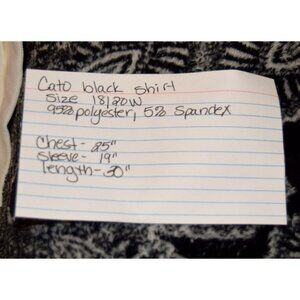 Cato black shirt
Size 18/20W
95% polyester, 5% Spandex
Chest - 25"
Sleeve - 19"
Length - 30"